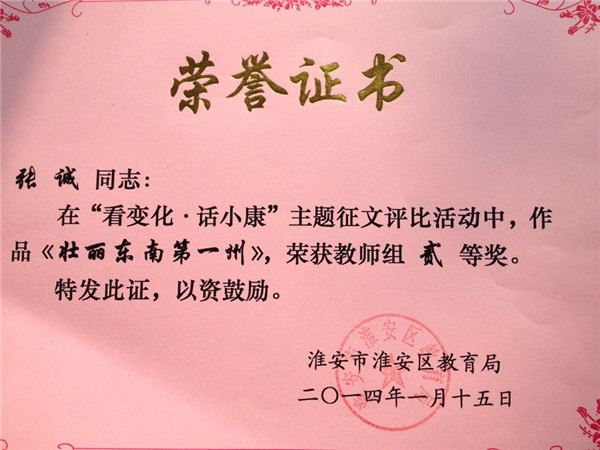 荣誉证书
张 诚 同志：
在“看变化·话小康”主题征文评比活动中，作
品《壮丽东南第一州》，荣获教师组 贰 等奖。
特发此证，以资鼓励。
淮安市淮安区教育局
二〇一四年一月十五日
淮安市淮安区教育局